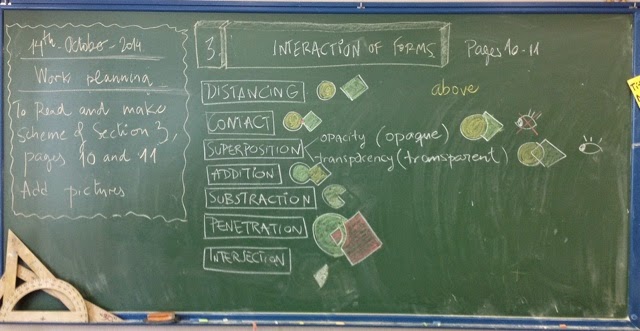 14th-October-2014
Work planning
To Read and make
scheme of Section 3,
pages 10 and 11
Add pictures
3 INTERACTION OF FORMS Pages 10-11
DISTANCING above
CONTACT
SUPERPOSITION
opacity (opaque)
transparency (transparent)
ADDITION
SUBSTRACTION
PENETRATION
INTERSECTION